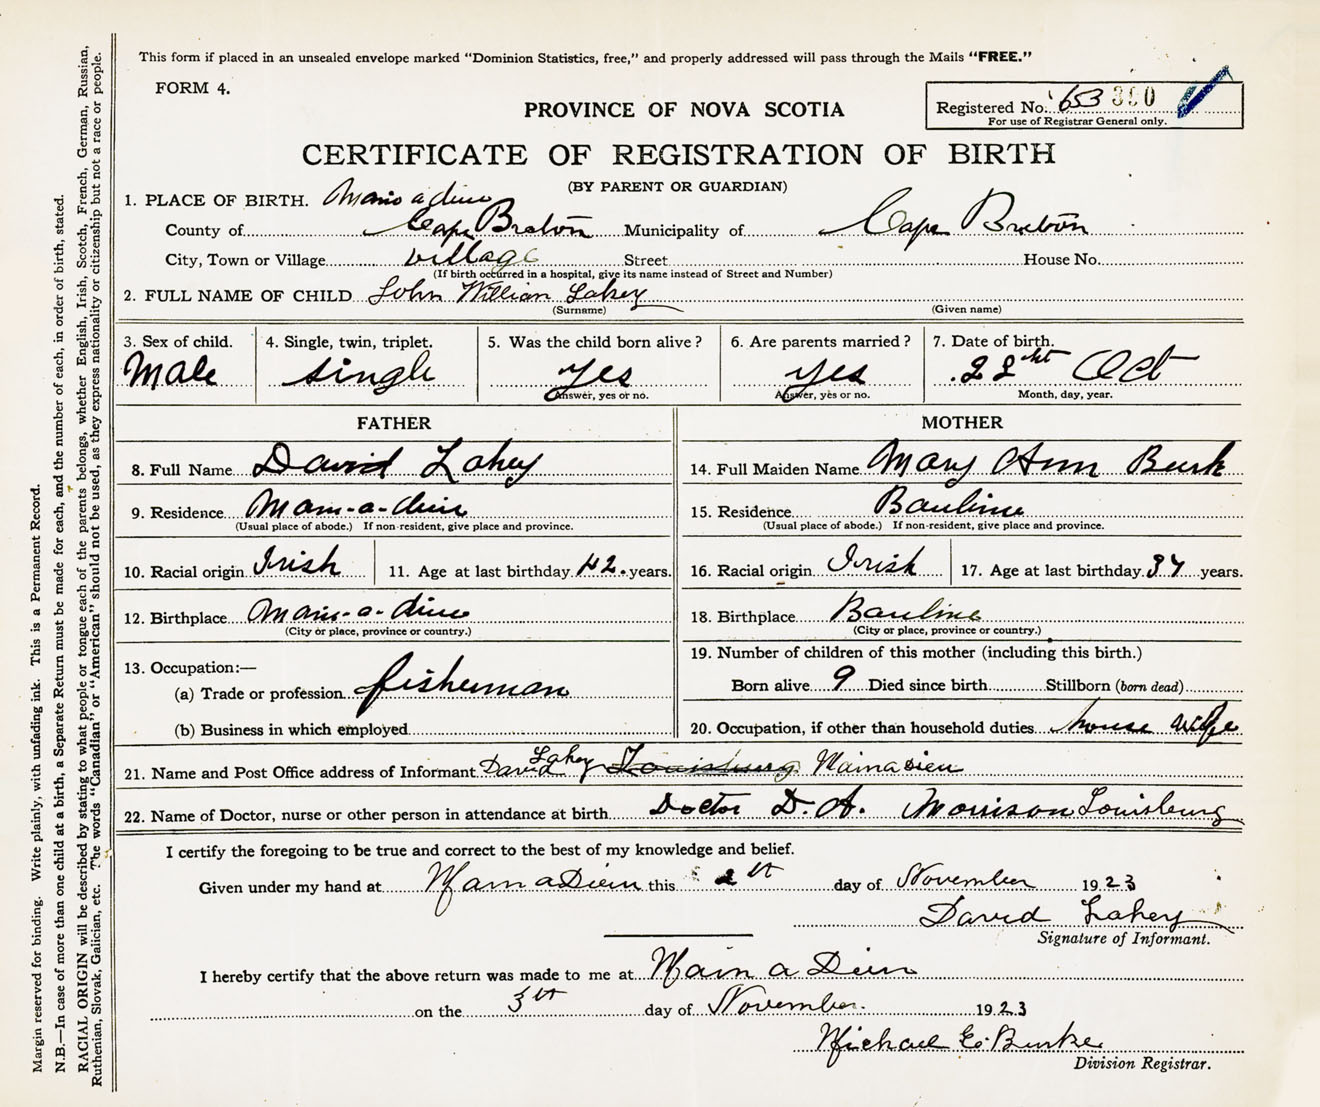 This form if placed in an unsealed envelope marked "Dominion Statistics, free," and properly addressed will pass through the Mails "FREE."
FORM 4.
PROVINCE OF NOVA SCOTIA
Registered No. 653
For use of Registrar General only.
CERTIFICATE OF REGISTRATION OF BIRTH
(BY PARENT OR GUARDIAN)
1. PLACE OF BIRTH. Main a dieu
County of Cape Breton Municipality of Cape Breton
City, Town or Village village Street House No.
(If birth occurred in a hospital, give its name instead of Street and Number)
2. FULL NAME OF CHILD John William Lahey
(Surname) (Given name)
3. Sex of child. 4. Single, twin, triplet. 5. Was the child born alive? 6. Are parents married? 7. Date of birth.
Male single yes yes 22 Oct
Answer, yes or no. Answer, yes or no. Month, day, year.
FATHER MOTHER
8. Full Name David Lahey 14. Full Maiden Name Mary Ann Burk
9. Residence Main-a-dieu 15. Residence Bauline
(Usual place of abode.) If non-resident, give place and province. (Usual place of abode.) If non-resident, give place and province.
10. Racial origin Irish 11. Age at last birthday 42. years. 16. Racial origin Irish 17. Age at last birthday 37 years.
12. Birthplace Main-a-dieu 18. Birthplace Bauline
(City or place, province or country.) (City or place, province or country.)
13. Occupation:— 19. Number of children of this mother (including this birth.)
(a) Trade or profession fisherman Born alive 9 Died since birth Stillborn (born dead)
(b) Business in which employed 20. Occupation, if other than household duties house wife
21. Name and Post Office address of Informant David Lahey Louisburg Mainadieu
22. Name of Doctor, nurse or other person in attendance at birth Doctor D. A. Morrison Louisburg
I certify the foregoing to be true and correct to the best of my knowledge and belief.
Given under my hand at Main a Dieu this 2th day of November 1923
David Lahey
Signature of Informant.
I hereby certify that the above return was made to me at Main a Dieu
on the 3th day of November 1923
Michael E. Burke
Division Registrar.
Margin reserved for binding. Write plainly, with unfading ink. This is a Permanent Record.
N.B.—In case of more than one child at a birth, a Separate Return must be made for each, and the number of each, in order of birth, stated.
RACIAL ORIGIN will be described by stating to what people or tongue each of the parents belongs, whether English, Irish, Scotch, French, German, Russian,
Ruthenian, Slovak, Galician, etc. The words "Canadian" or "American" should not be used, as they express nationality or citizenship but not a race or people.